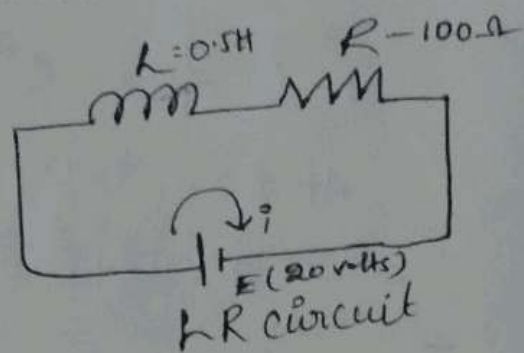 L=0.5H
R-100Ω
i
E(20 volts)
LR circuit